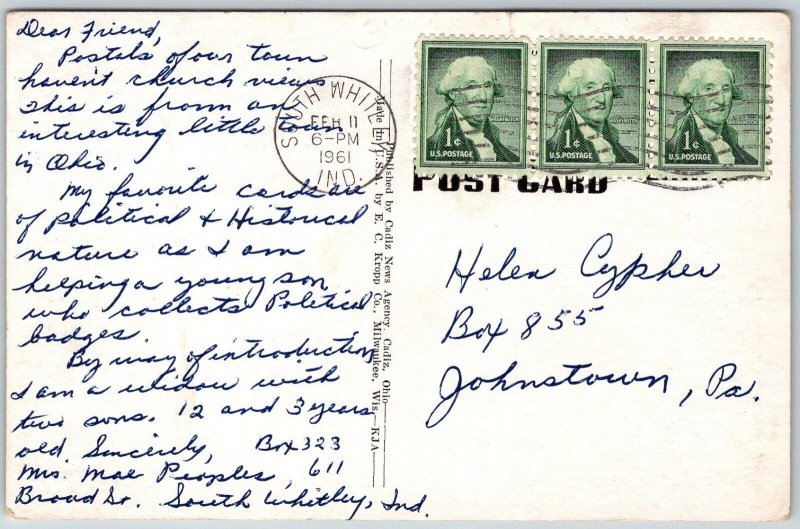 Dear Friend,
Postals of our town
haven't church views
This is from an
interesting little town
in Ohio.
My favorite cards are
of political & Historical
nature as I am
helping a young son
who collects Political
badges.
By way of introduction
I am a widow with
two sons. 12 and 3 years
old. Sincerely, Box 323
Mrs. Mae Peoples, 611
Broad St. South Whitley, Ind.
Published by Cadiz News Agency, Cadiz, Ohio
Made in U.S.A. by E. C. Kropp Co., Milwaukee, Wis.—KJA
SOUTH WHIT
FEB 11
6-PM
1961
IND.
WASHINGTON
1¢
U.S. POSTAGE
WASHINGTON
1¢
U.S. POSTAGE
WASHINGTON
1¢
U.S. POSTAGE
POST CARD
Helen Cypher
Box 855
Johnstown, Pa.